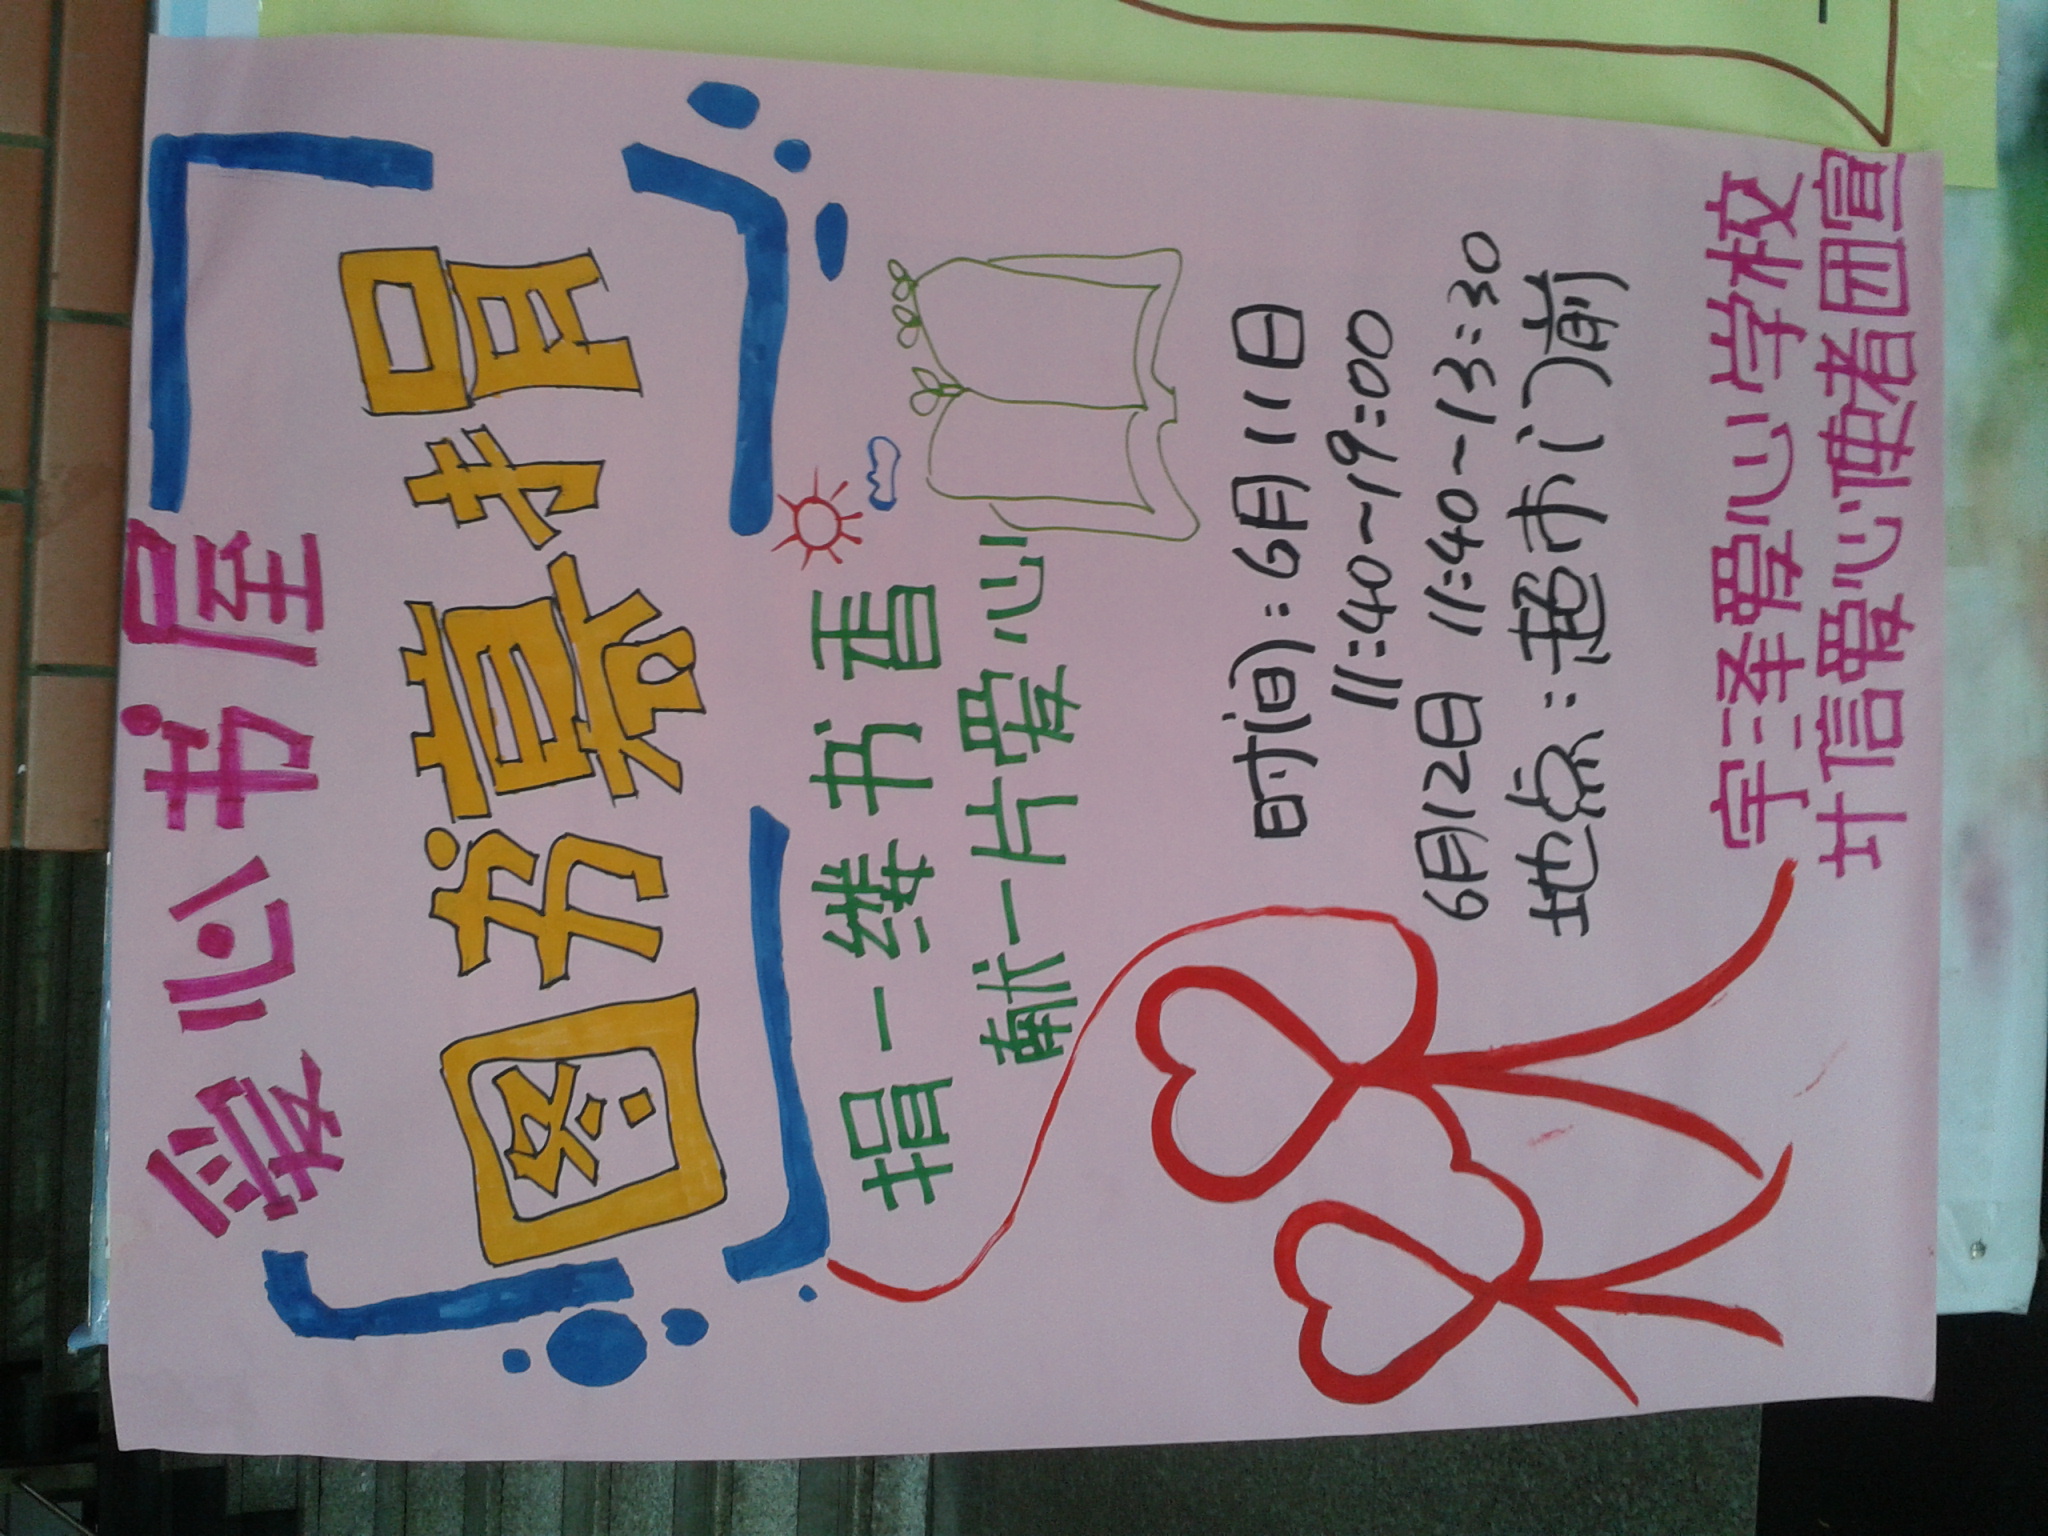 爱心书屋
图书募捐
捐一缕书香
献一片爱心
时间：6月11日
11:40~19:00
6月12日 11:40~13:30
地点：超市门前
宇泽爱心学校
叶信爱心使者团宣